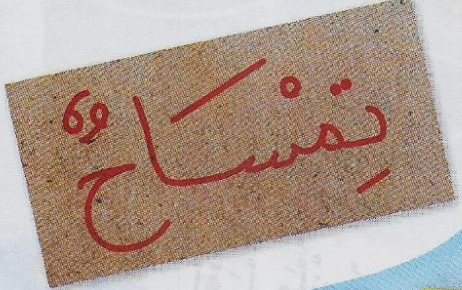 تِمْسَاحٌ